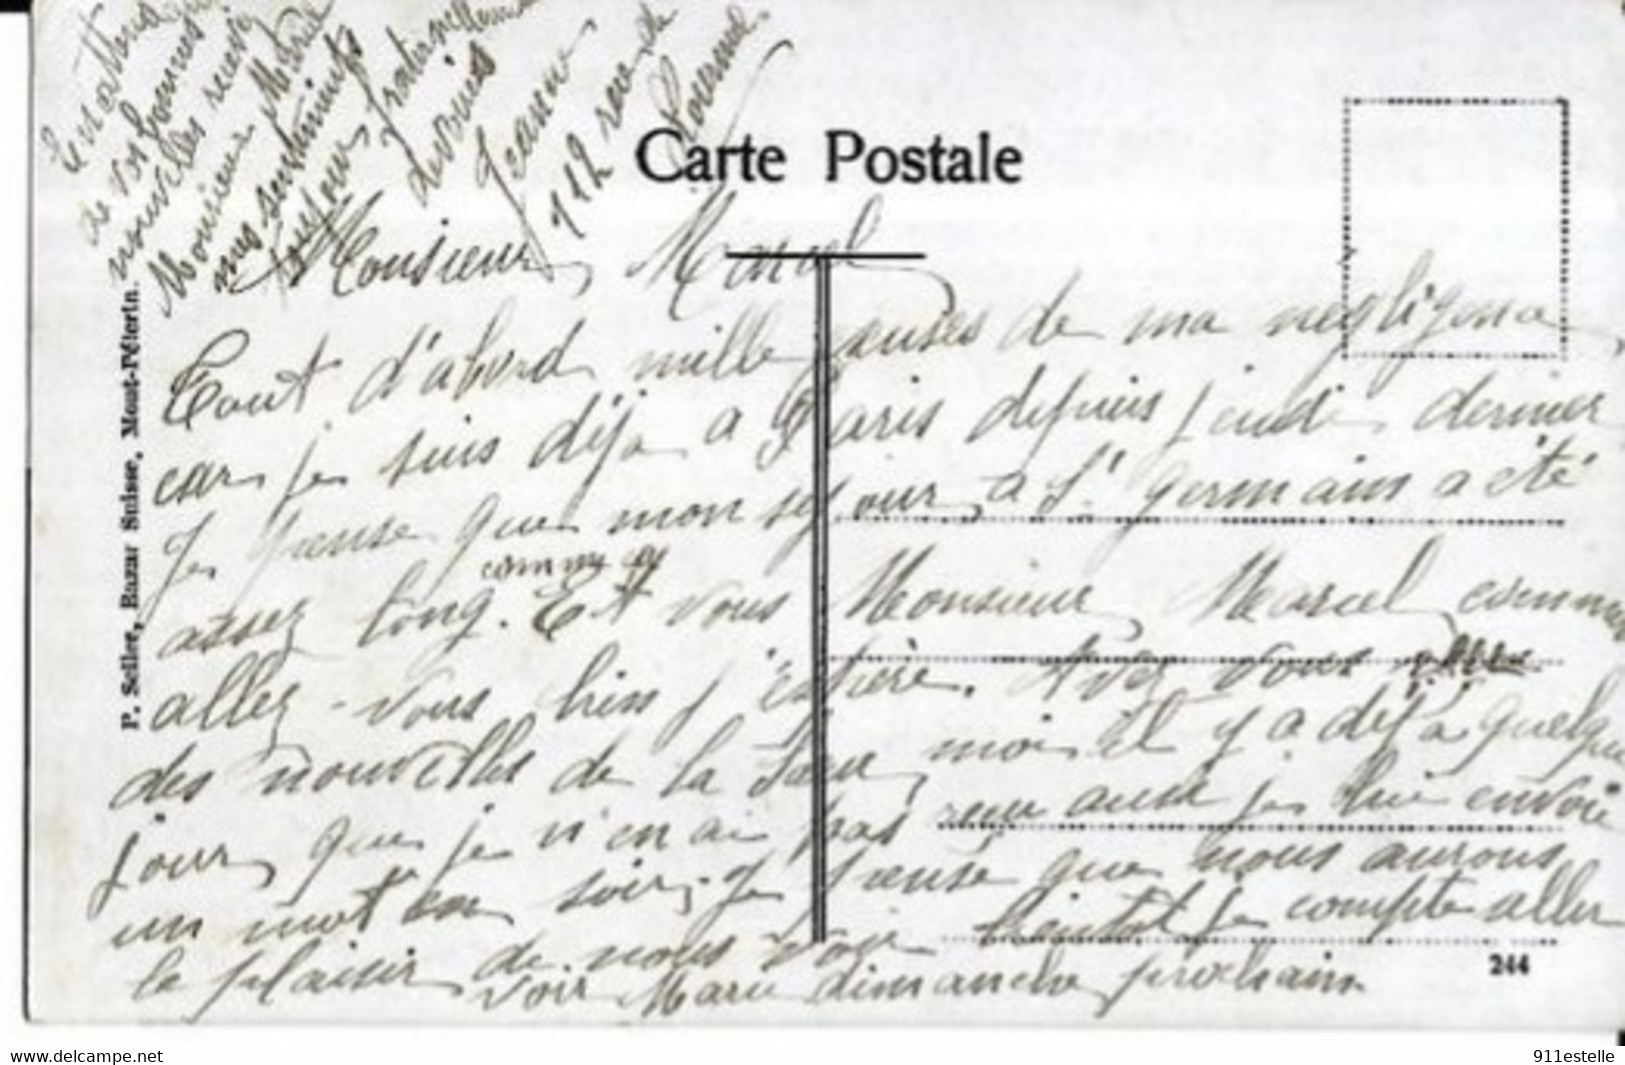 En attendant
de vos bonnes
nouvelles recevez
Monsieur Marcel
mes sentiments
toujours fraternellement
dévoués
Jeanne
112 rue de
Carte Postale
Monsieur Marcel
Tout d'abord mille excuses de ma negligence
car je suis déja a Paris depuis jeudi dernier
Je pense que mon sejour a St Germain a été
assez long. Et vous Monsieur Marcel comme
allez-vous bien j'éspère. Avez vous
des nouvelles de la Sœur, moi il y a déjà quelque
jours que je n'en ai pas reçu aussi je lui envoie
un mot ce soir, Je pense que nous aurons
le plaisir de nous voir bientot je compte aller
voir Marie dimanche prochain.
P. Seller, Bazar Suisse, Mont-Pélerin.
244
www.delcampe.net
911estelle